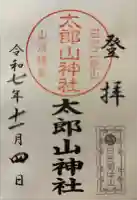 登拝
太郎山神社
太郎山神社
令和七年十一月四日